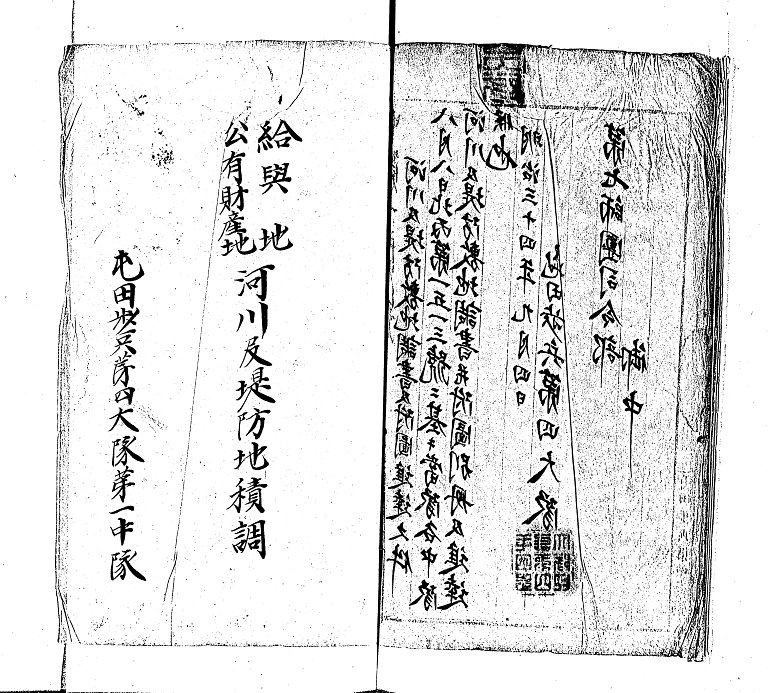 河川及堤防敷地調書及附圖進達之件
八月八日北丙第一五一三號ニ基キ當隊各中隊
河川及堤防敷地調書並附圖別冊及進達
候也
明治三十四年九月四日
屯田歩兵第四大隊
第七師團司令部
御中
給與地
公有財産地
河川及堤防地積調
屯田歩兵第四大隊第一中隊